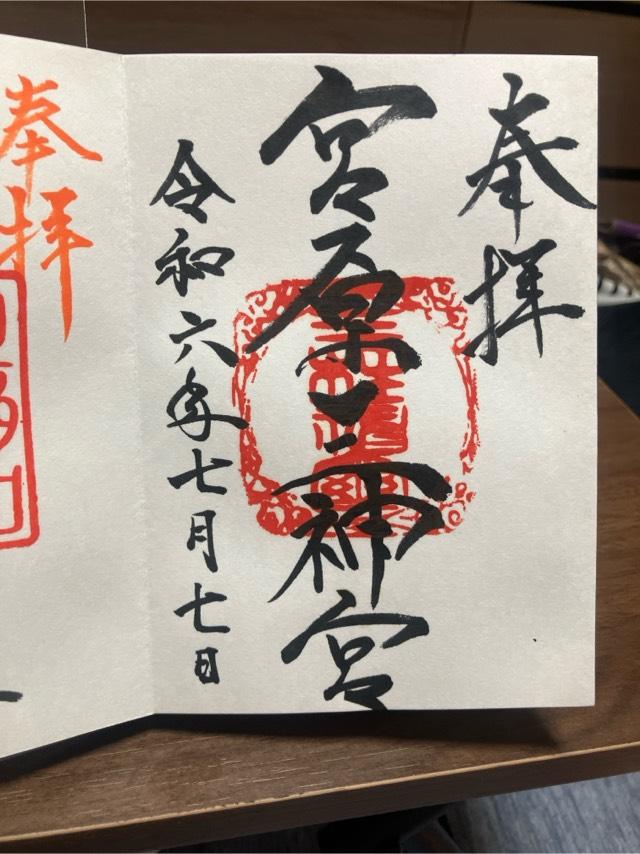 奉拝
宮原三神宮
令和六年七月七日
奉拝